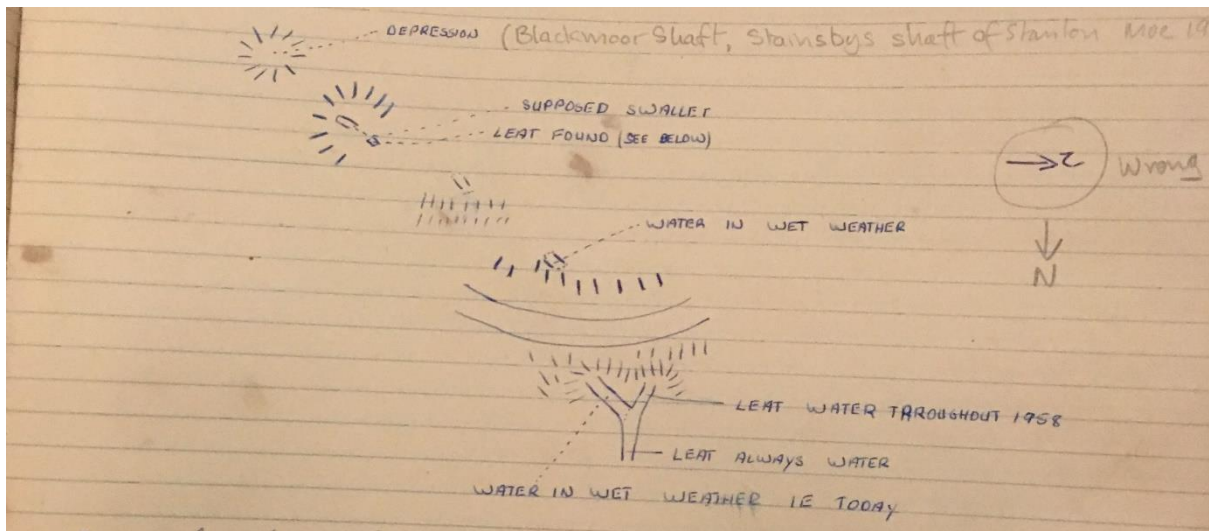 DEPRESSION (Blackmoor Shaft, Stainsbys shaft of Stanton MOC 19
SUPPOSED SWALLET
LEAT FOUND (SEE BELOW)
N Wrong
WATER IN WET WEATHER
N
LEAT WATER THROUGHOUT 1958
LEAT ALWAYS WATER
WATER IN WET WEATHER IE TODAY